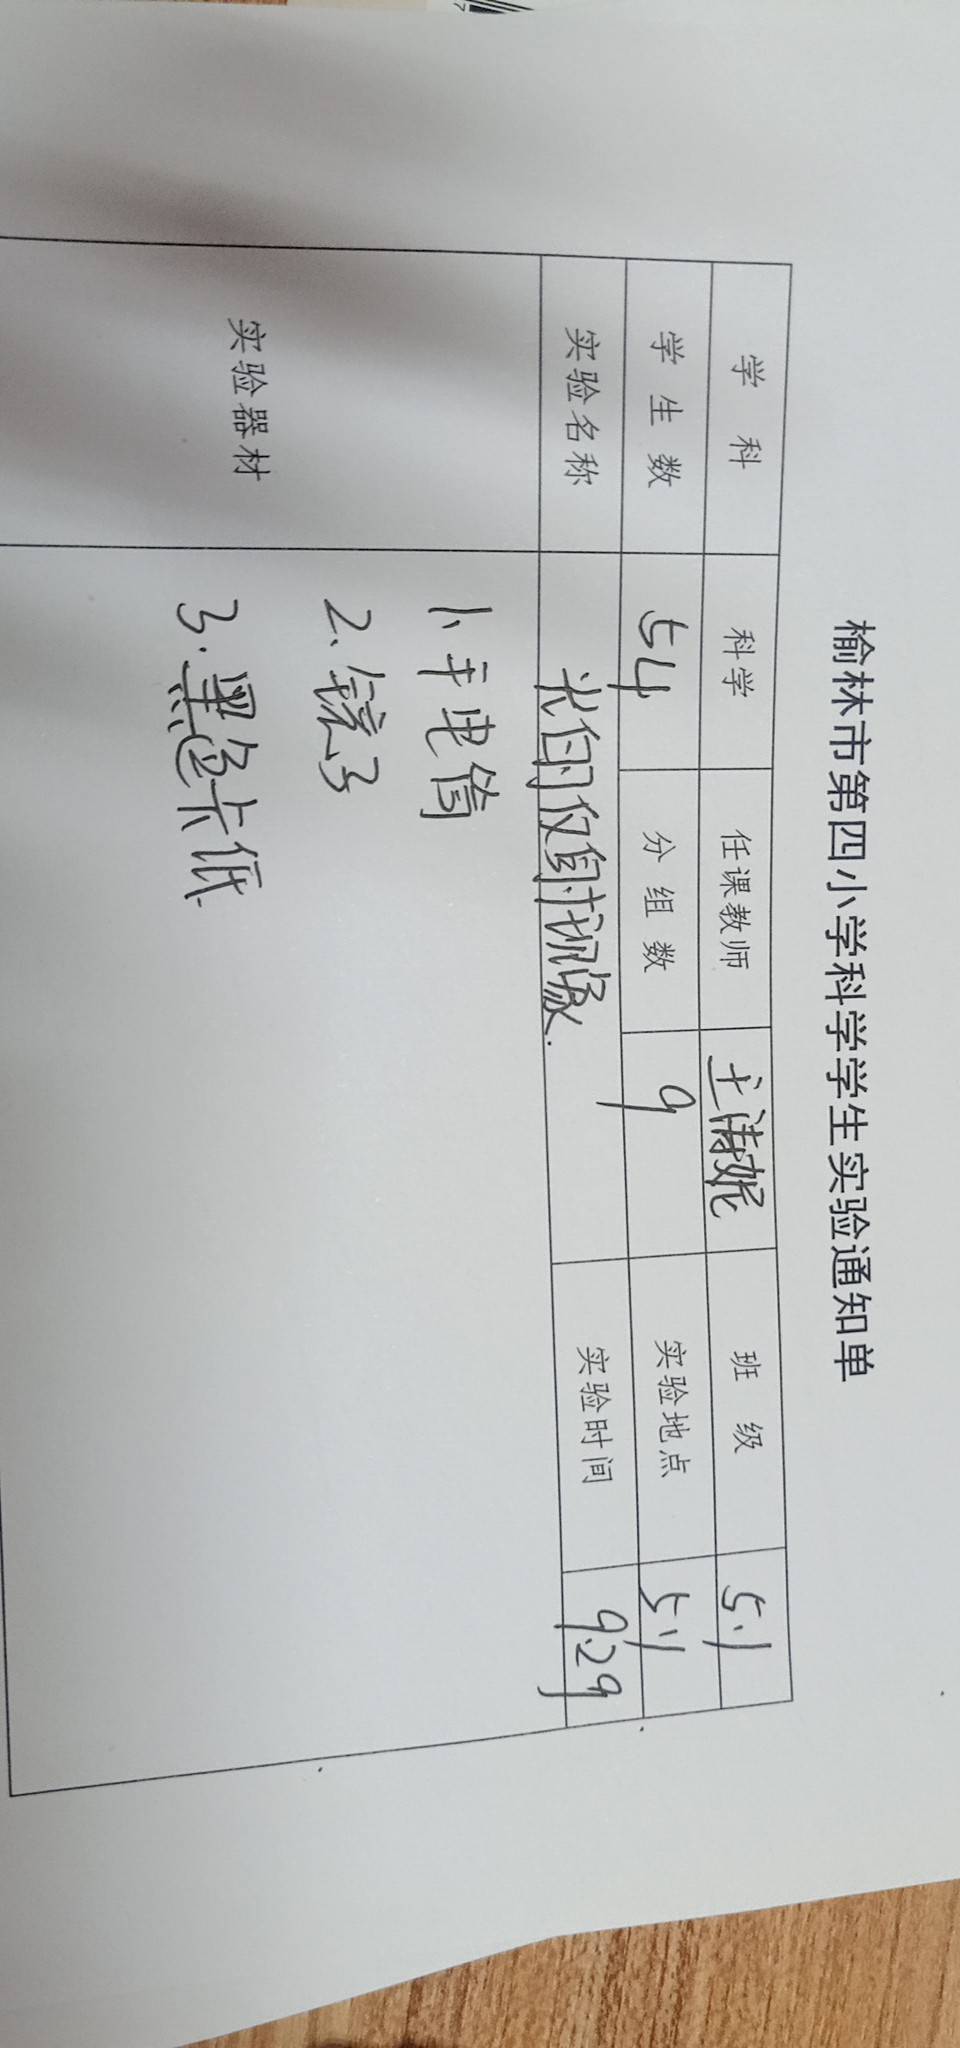 榆林市第四小学科学学生实验通知单
学 科 科学 任课教师 王清妮 班 级 5.1
学 生 数 54 分 组 数 9 实验地点 5.1
实验名称 光的反射现象. 实验时间 9.29
实验器材
1、手电筒
2、镜子
3.黑色卡纸